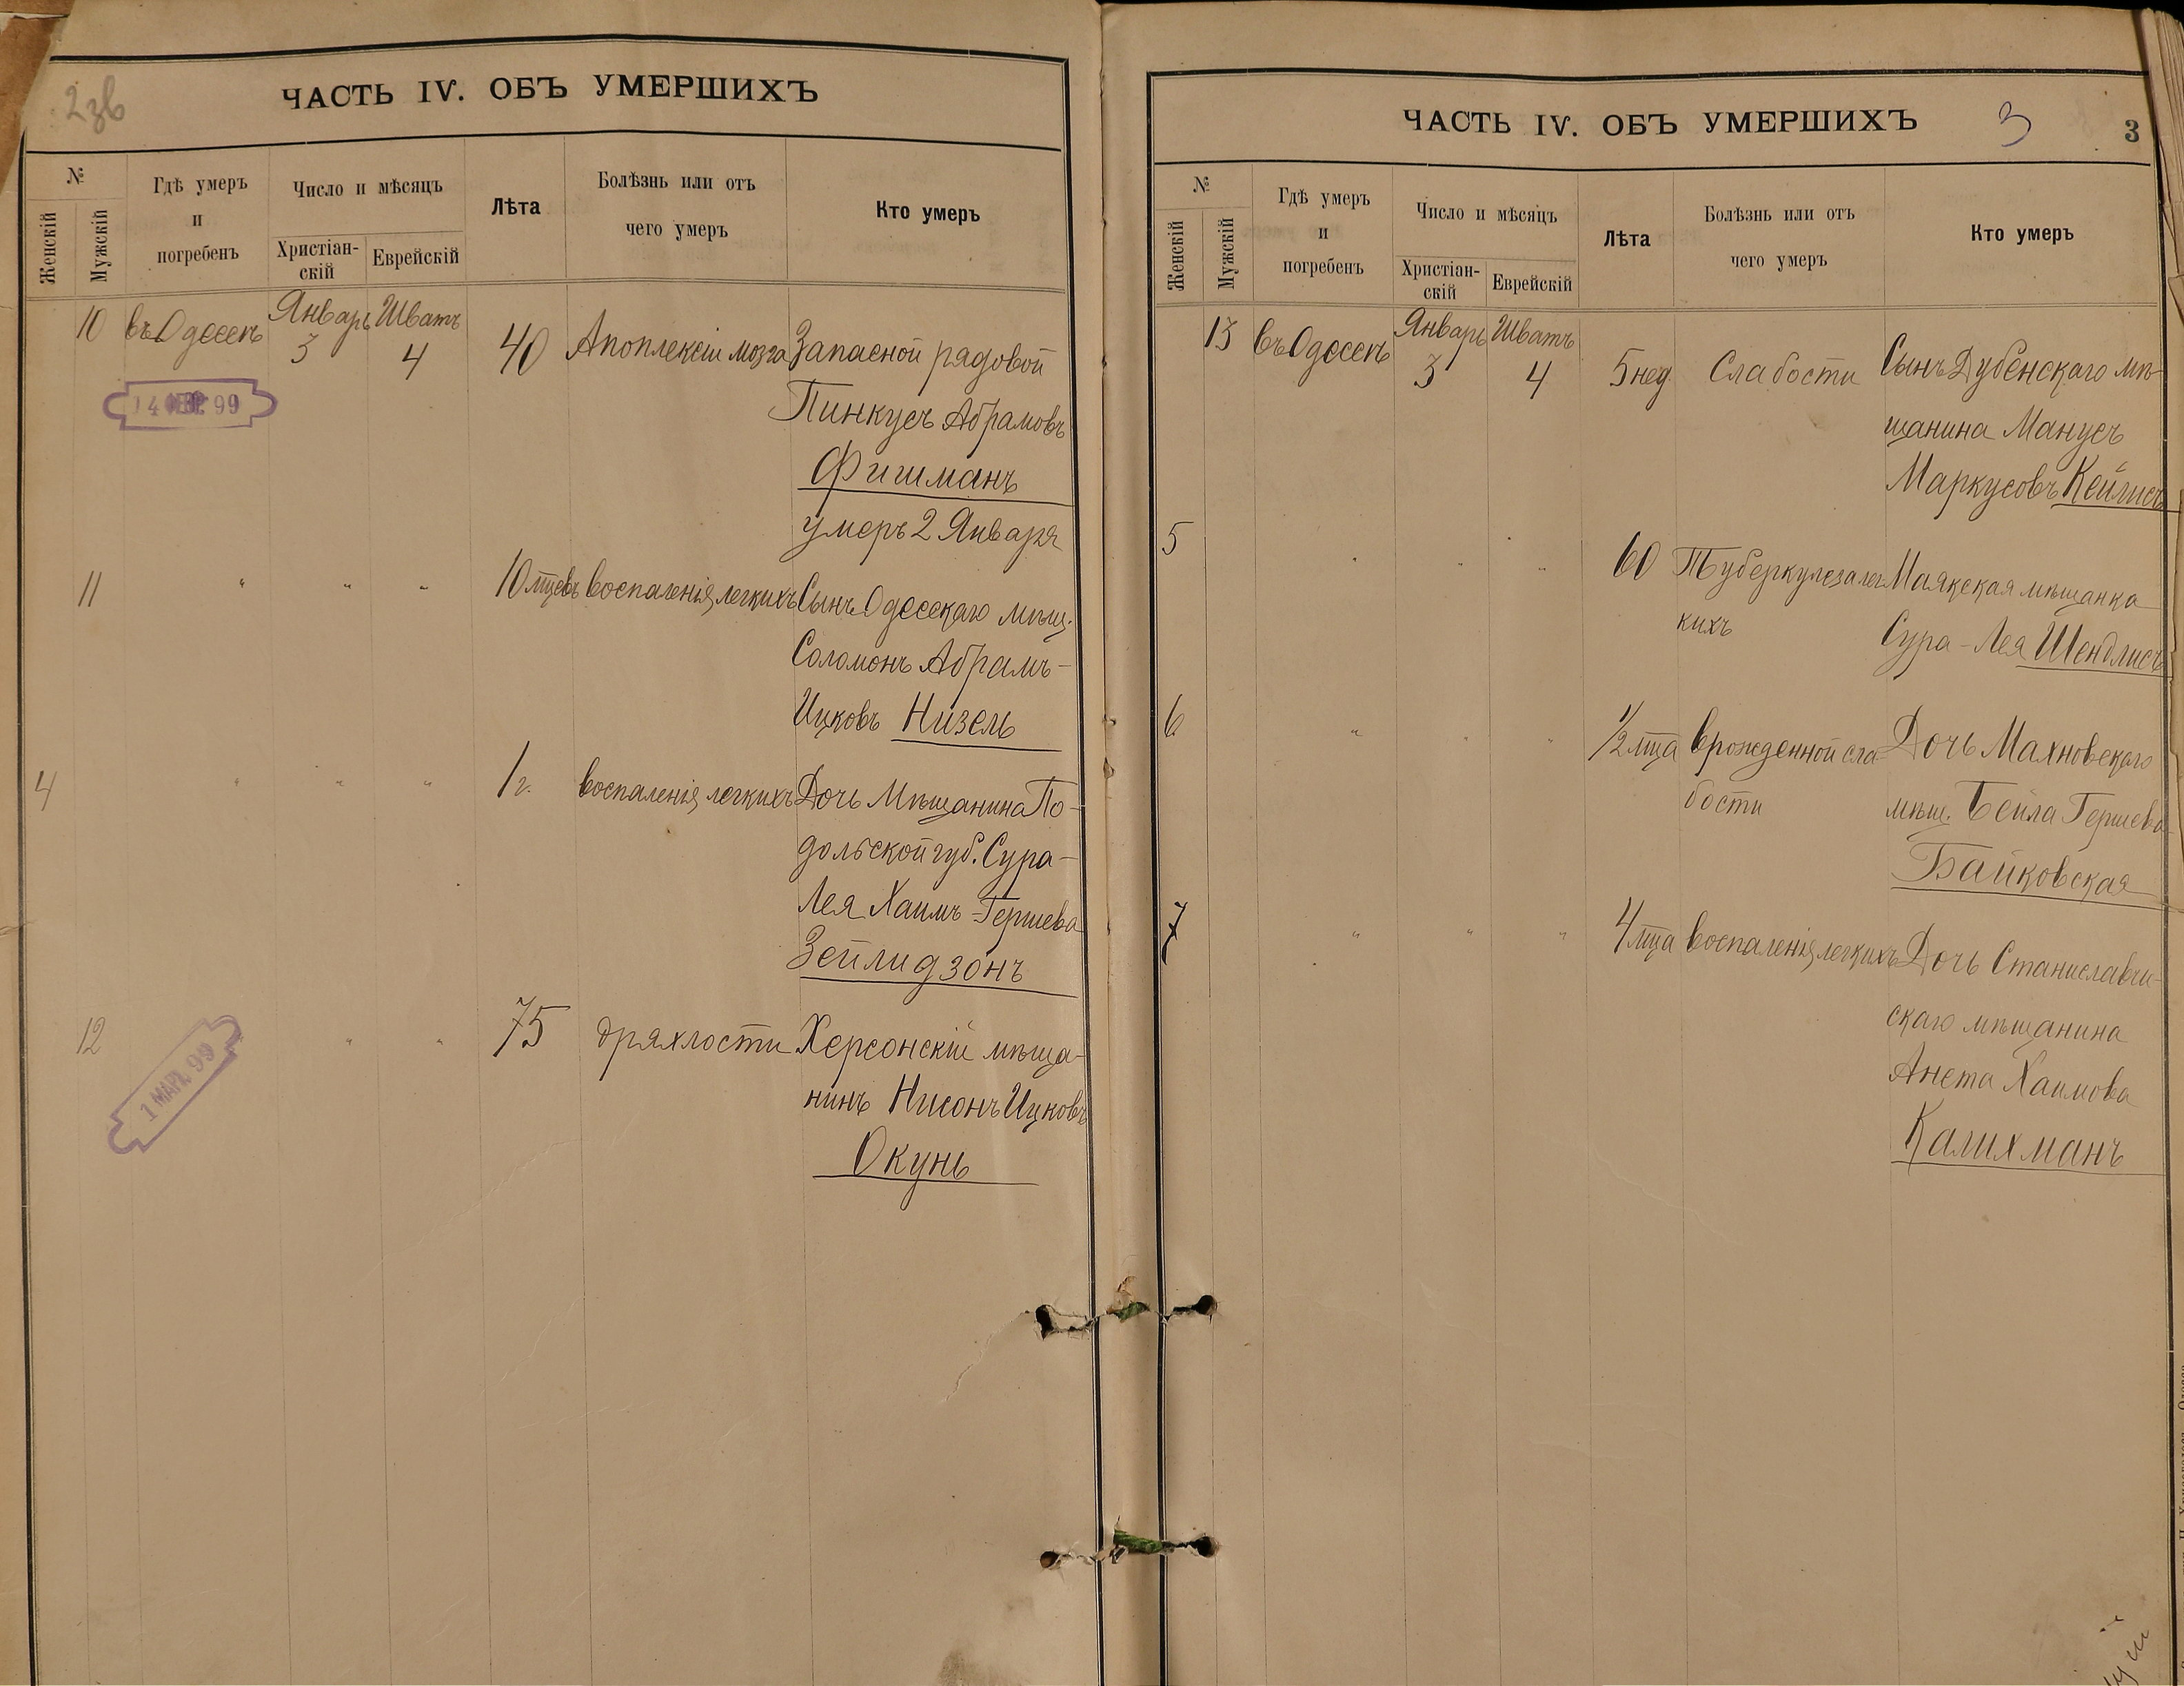 2зв
ЧАСТЬ IV. ОБЪ УМЕРШИХЪ
№
Женскій
Мужскій
Гдѣ умеръ
и
погребенъ
Число и мѣсяцъ
Христіан-
скій
Еврейскій
Лѣта
Болѣзнь или отъ
чего умеръ
Кто умеръ
10 въ Одессѣ Январь 3 Шватъ 4 40 Апоплексіи мозга Запасной рядовой
Пинкусъ Абрамовъ
Фишманъ
умеръ 2 Января
11 " " " 10 мцевъ воспаленія легкихъ Сынъ Одесскаго мѣщ.
Соломонъ Абрамъ-
Ицковъ Низель
4 " " " 1 г. воспаленія легкихъ Дочь Мѣщанина По-
дольской губ. Сура-
Лея Хаимъ-Гершева
Зейлидзонъ
12 " " 75 дряхлости Херсонскій мѣща-
нинъ Нисонъ Ицковъ
Окунь
1 МАР. 99
ЧАСТЬ IV. ОБЪ УМЕРШИХЪ
3
3
№
Женскій
Мужскій
Гдѣ умеръ
и
погребенъ
Число и мѣсяцъ
Христіан-
скій
Еврейскій
Лѣта
Болѣзнь или отъ
чего умеръ
Кто умеръ
13 въ Одессѣ Январь 3 Шватъ 4 5 нед. Слабости Сынъ Дубенскаго мѣ-
щанина Манусъ
Маркусовъ Кейлисъ
5 " " " 60 Туберкулеза лег- Маякская мѣщанка
кихъ Сура-Лея Шендлисъ
6 " " " 1/2 мца врожденной сла- Дочь Махновскаго
бости мѣщ. Бейла Гершева
Байковская
7 " " " 4 мца воспаленія легкихъ Дочь Станиславчи-
скаго мѣщанина
Анета Хаимова
Калихманъ